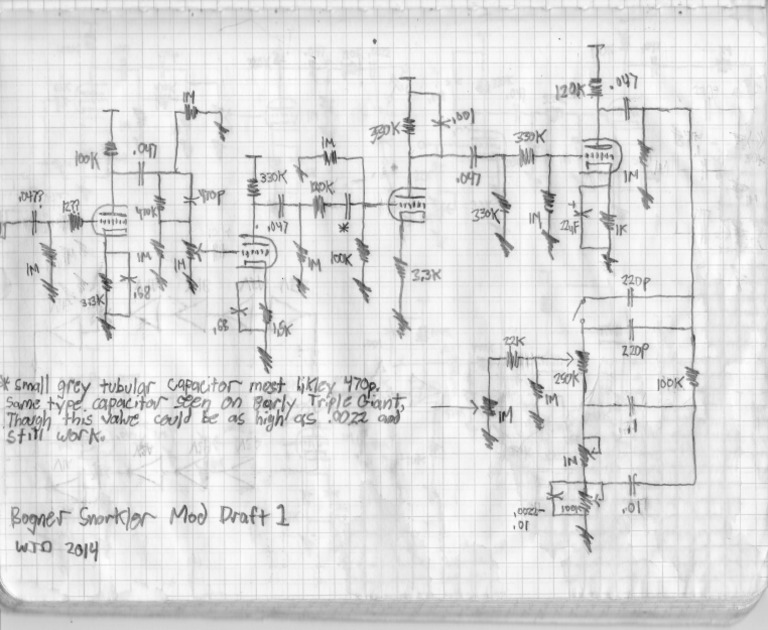 1M
120K
.047
100K
.047
330K
.001
1M
330K
330K
1M
470p
120K
.047
.047?
12??
470K
.047
330K
1M
1M
*
22µF
1K
1M
1M
1M
1M
100K
3.3K
3.3K
.68
.68
1.5K
220p
22K
220p
250K
100K
1M
1M
.1
1M
.0022-
.01
100K
.01
* small grey tubular capacitor most likley 470p.
Same type capacitor seen on Early Triple Giant,
Though this value could be as high as .0022 and
still work.
Bogner Snorkler Mod Draft 1
WTD 2014